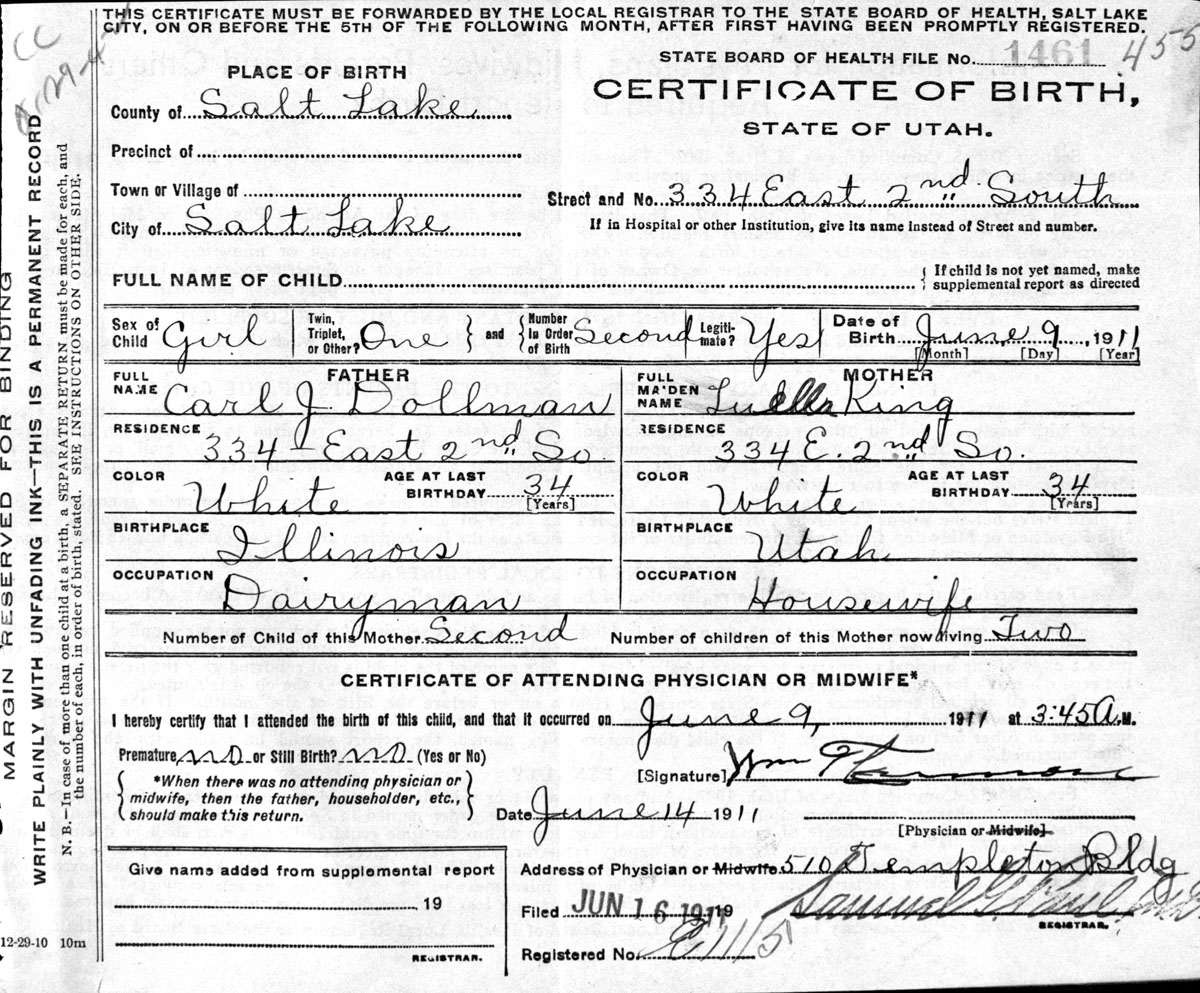 THIS CERTIFICATE MUST BE FORWARDED BY THE LOCAL REGISTRAR TO THE STATE BOARD OF HEALTH, SALT LAKE
CITY, ON OR BEFORE THE 5TH OF THE FOLLOWING MONTH, AFTER FIRST HAVING BEEN PROMPTLY REGISTERED.
CC
455
STATE BOARD OF HEALTH FILE No. 1461
PLACE OF BIRTH
CERTIFICATE OF BIRTH,
STATE OF UTAH.
County of Salt Lake
Precinct of
Town or Village of
Street and No. 334 East 2nd South
City of Salt Lake
If in Hospital or other Institution, give its name instead of Street and number.
FULL NAME OF CHILD
{ If child is not yet named, make
supplemental report as directed
Sex of Child Girl
Twin, Triplet, or Other? One
} and {
Number in Order of Birth Second
Legiti- mate? Yes
Date of Birth June 9, 1911
[Month] [Day] [Year]
FATHER
MOTHER
FULL NAME Carl J. Dollman
FULL MAIDEN NAME Luella King
RESIDENCE 334-East 2nd So.
RESIDENCE 334 E. 2nd So.
COLOR White AGE AT LAST BIRTHDAY 34 [Years]
COLOR White AGE AT LAST BIRTHDAY 34 [Years]
BIRTHPLACE Illinois
BIRTHPLACE Utah
OCCUPATION Dairyman
OCCUPATION Housewife
Number of Child of this Mother Second
Number of children of this Mother now living Two
CERTIFICATE OF ATTENDING PHYSICIAN OR MIDWIFE*
I hereby certify that I attended the birth of this child, and that it occurred on June 9, 1911 at 3:45 A. M.
Premature? no or Still Birth? no (Yes or No)
[Signature] Wm
{ *When there was no attending physician or
midwife, then the father, householder, etc.,
should make this return. }
Date June 14 1911
[Physician or Midwife]
Address of Physician or Midwife 510 Templeton Bldg
Give name added from supplemental report
19
REGISTRAR.
Filed JUN 16 1911 19
Samuel G. Paul
REGISTRAR.
Registered No.
12-29-10 10m
MARGIN RESERVED FOR BINDING
WRITE PLAINLY WITH UNFADING INK—THIS IS A PERMANENT RECORD
N. B.—In case of more than one child at a birth, a SEPARATE RETURN must be made for each, and the
number of each, in order of birth, stated. SEE INSTRUCTIONS ON OTHER SIDE.